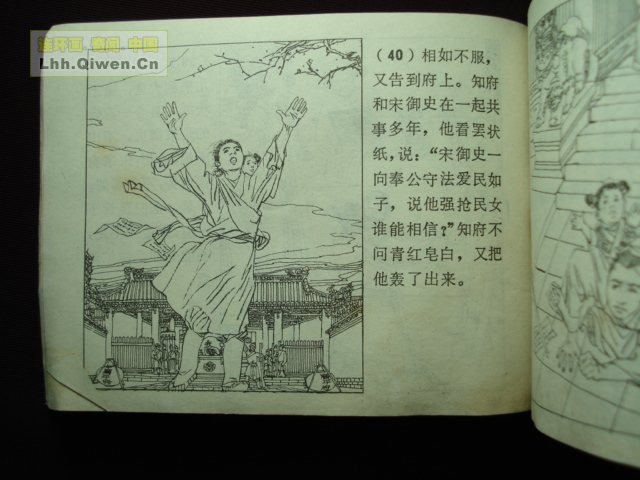 连环画 空间 中国
Lhh.Qiwen.Cn
（40）相如不服，
又告到府上。知府
和宋御史在一起共
事多年，他看罢状
纸，说：“宋御史一
向奉公守法爱民如
子，说他强抢民女
谁能相信？”知府不
问青红皂白，又把
他轰了出来。